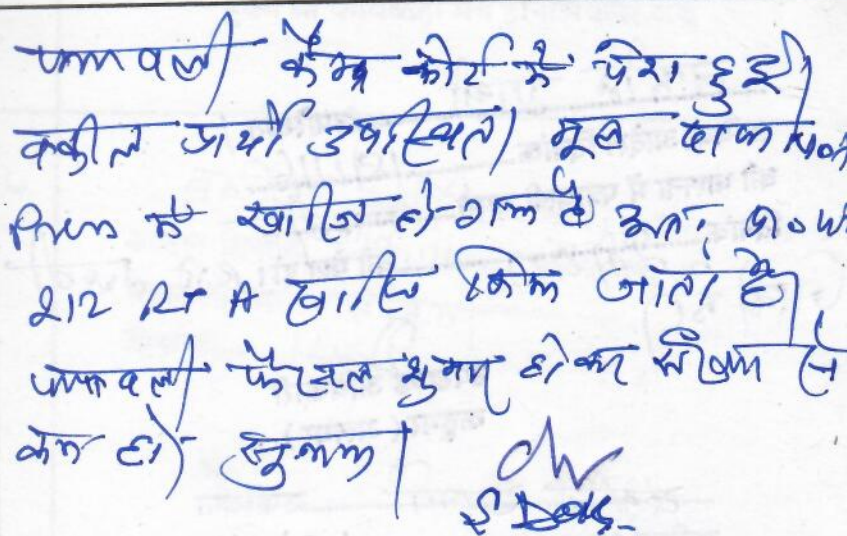 पत्रावली कैम्प कोर्ट में पेश हुई।
वकील प्रार्थी उपस्थित। मूल दावा
में खारिज हो गया है अतः
212 RTA खारिज किया जाता है।
पत्रावली फैसल शुमार होकर नम्बर से
कम हो। सुनाया।